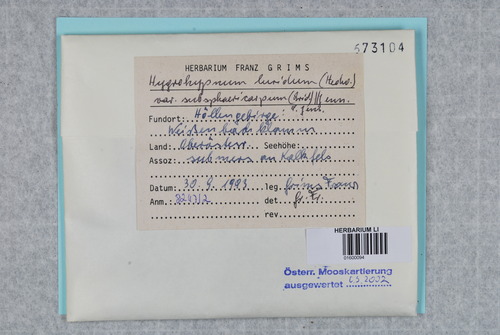 673104
HERBARIUM FRANZ GRIMS
Hygrohypnum luridum (Hedw.)
var. subsphaericarpum (Brid.) Jenn.
Fundort: Höllengebirge:
Weißenbach
Land: Oberösterr. Seehöhe:
Assoz: submers an Kalkfels
Datum: 30. 9. 1993 leg. Grims Franz
Anm. det. Gr. Fr.
rev.
HERBARIUM LI
01600094
Österr. Mooskartierung
ausgewertet 2002